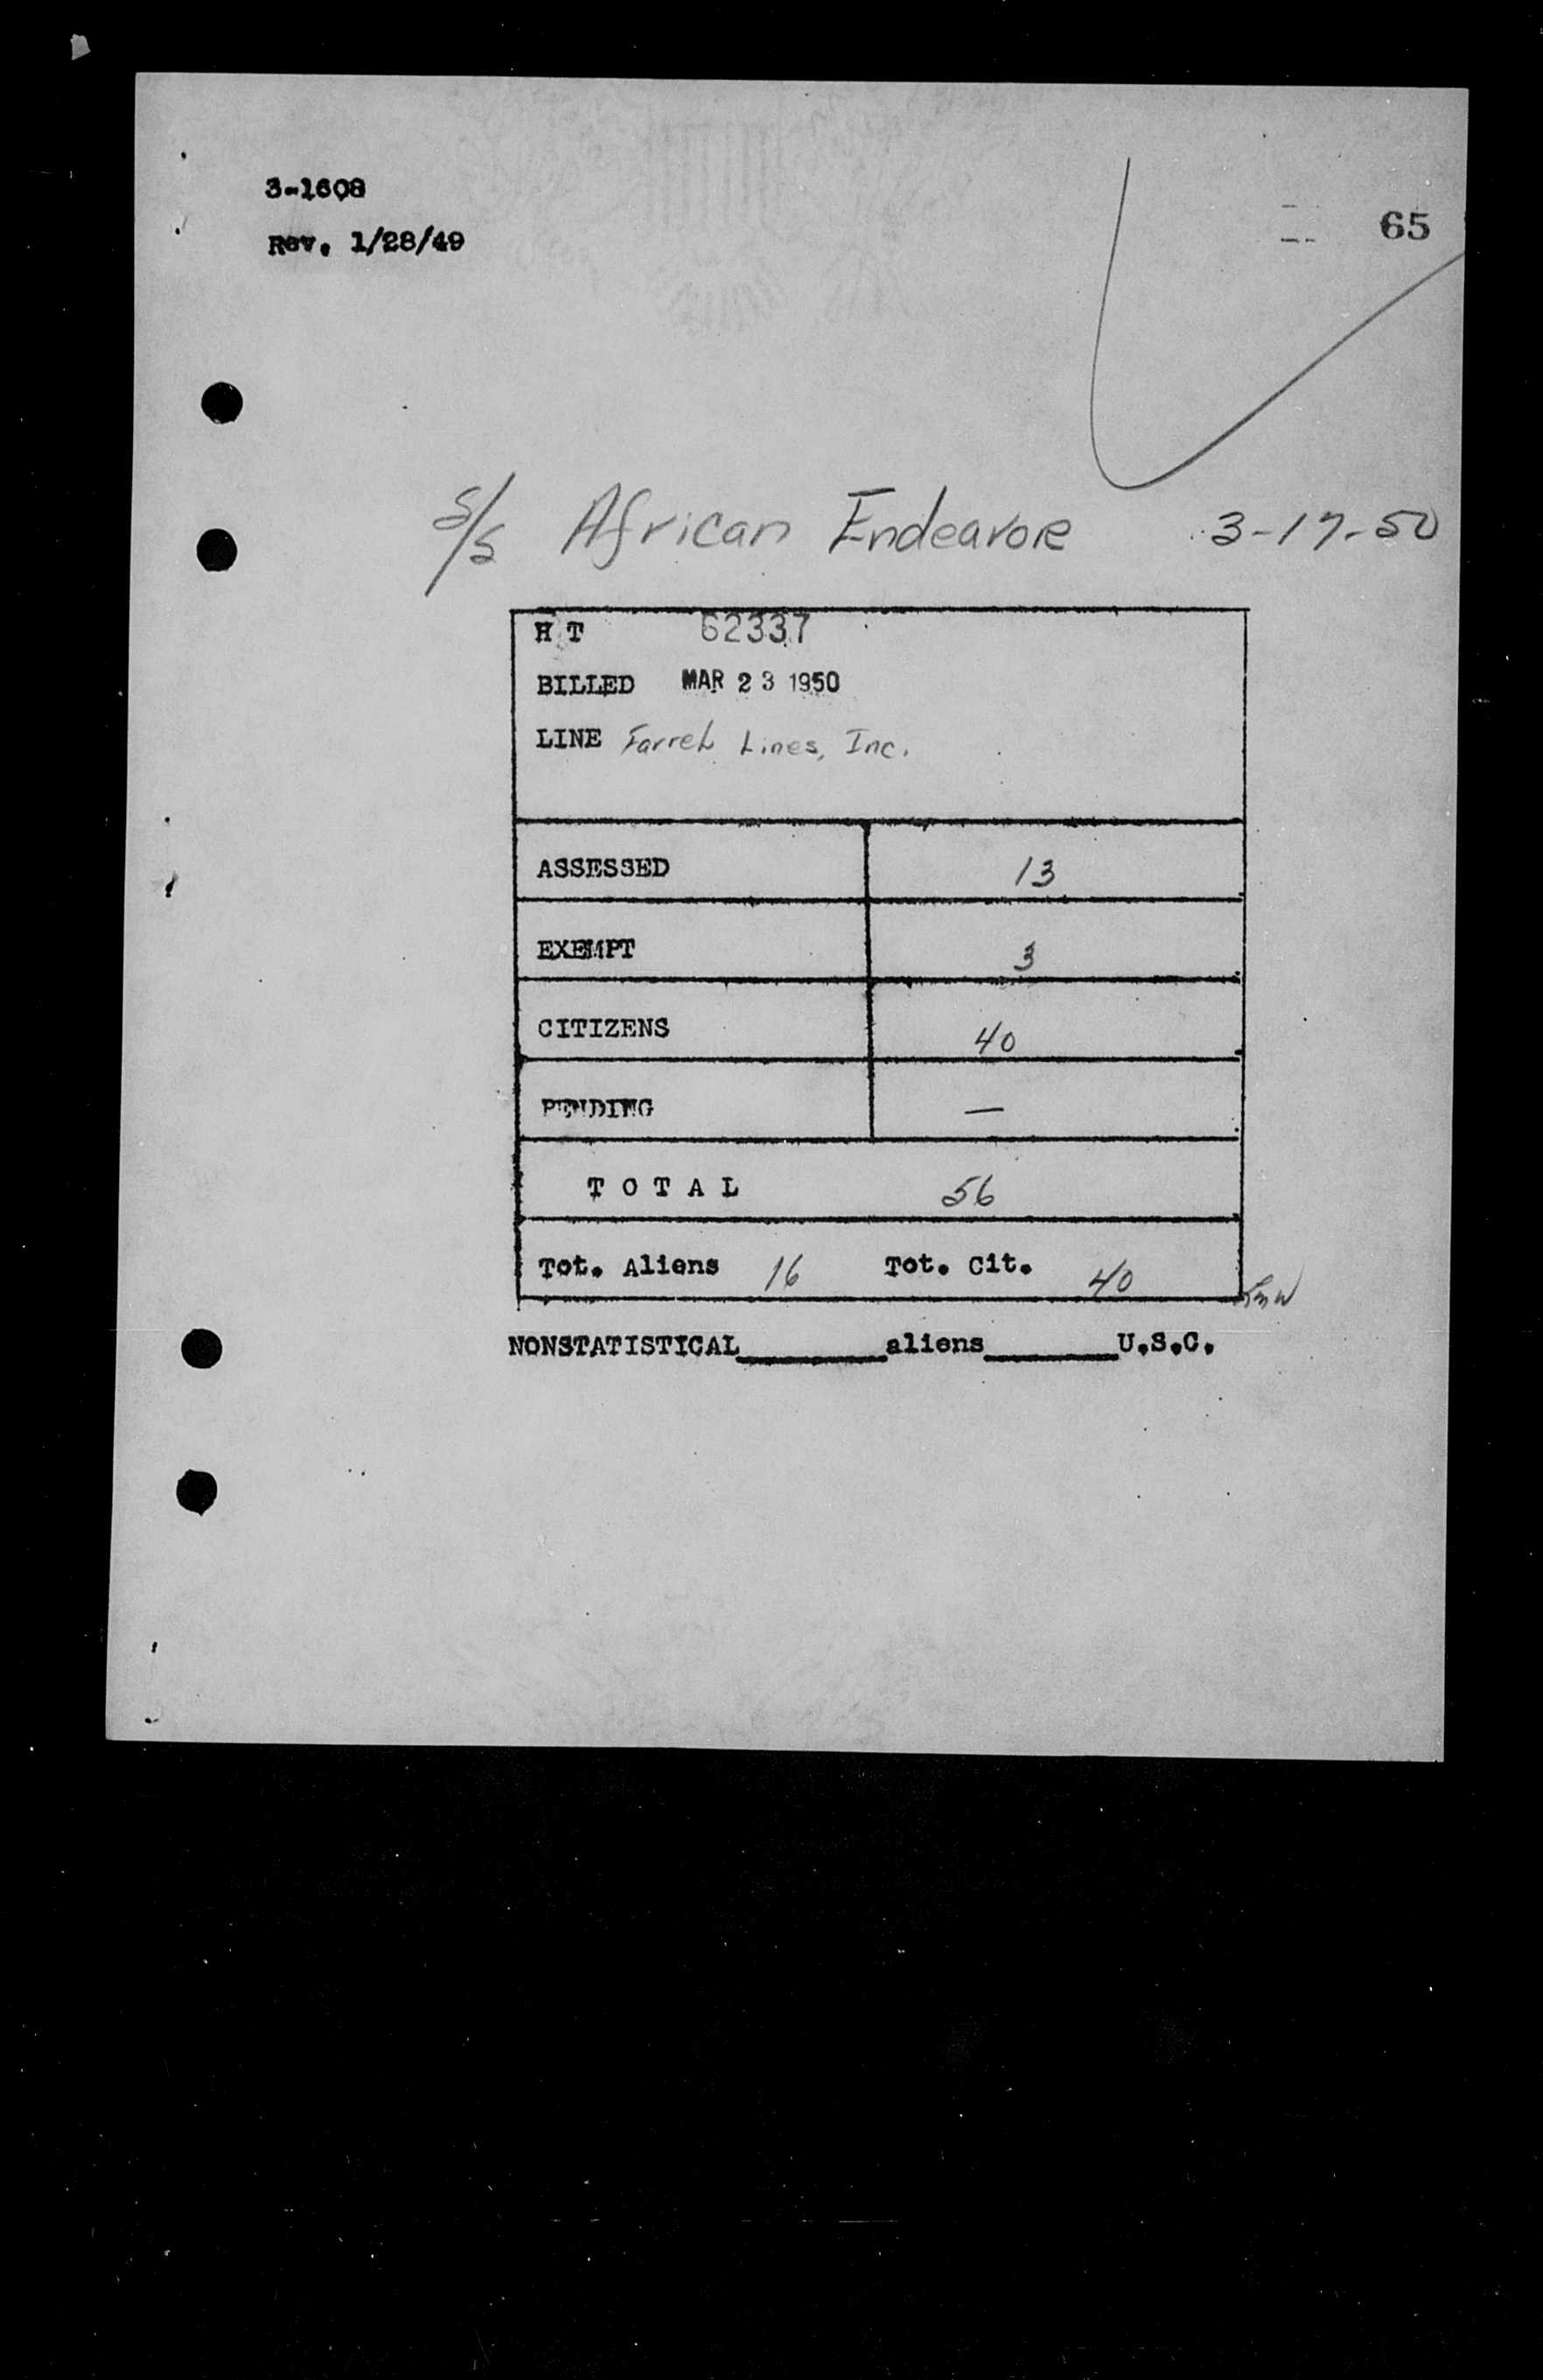 3-1608
Rev. 1/28/49
65
S/S African Endeavor 3-17-50
H T 62337
BILLED MAR 23 1950
LINE Farrel Lines, Inc.
ASSESSED 13
EXEMPT 3
CITIZENS 40
PENDING —
T O T A L 56
Tot. Aliens 16 Tot. Cit. 40
NONSTATISTICAL________aliens_______U.S.C.